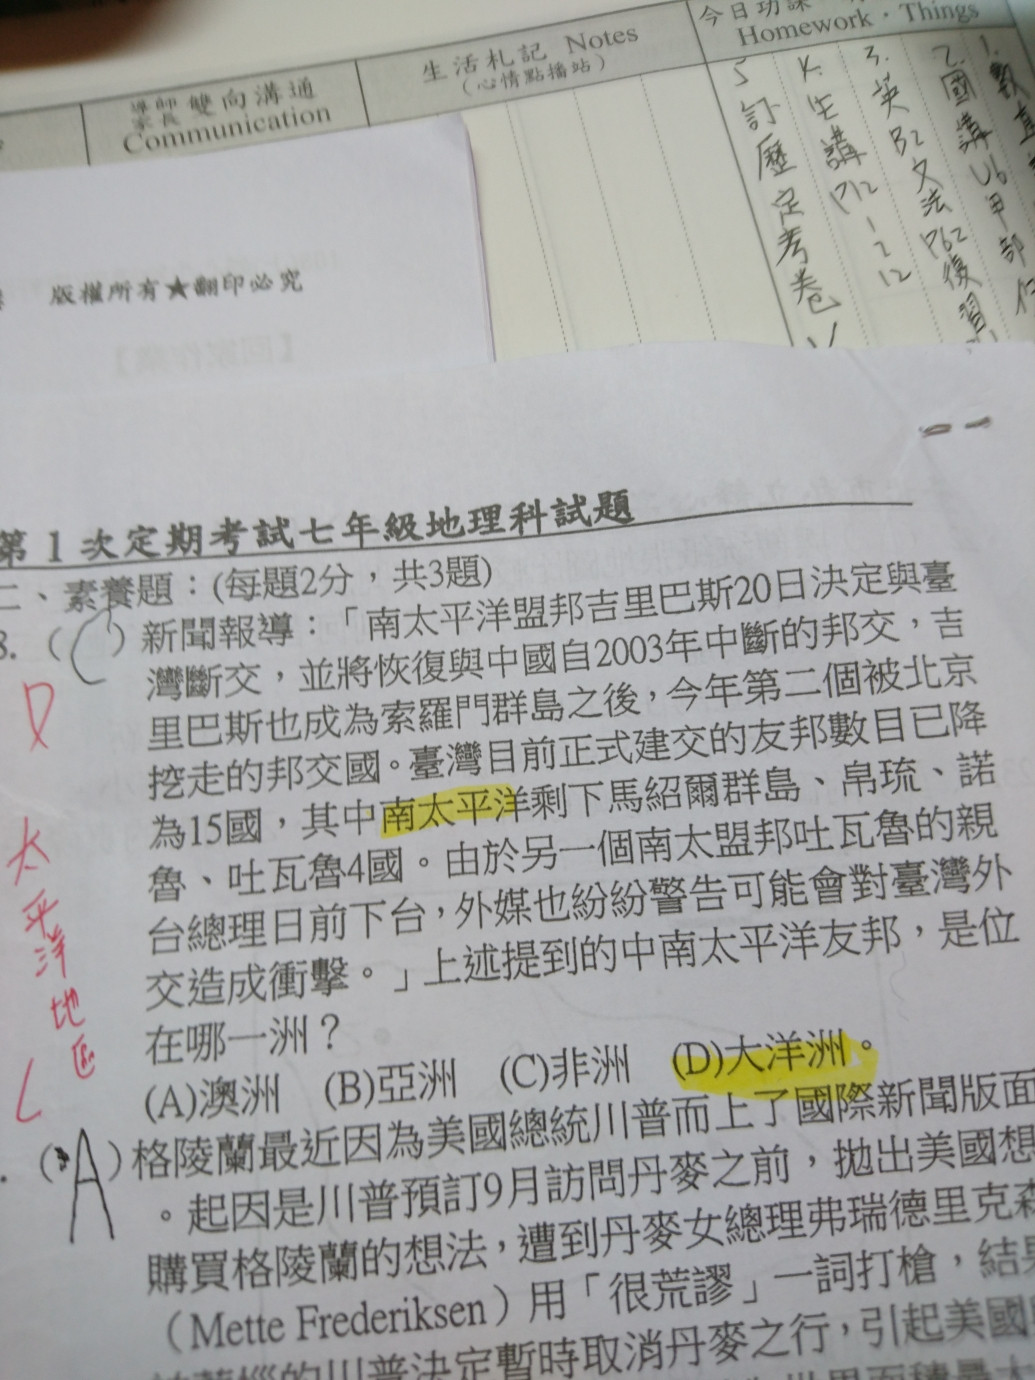 導師
家長 雙向溝通
Communication
生活札記 Notes
(心情點播站)
今日功課
Homework · Things
1. 數
2. 國講U6甲部
3. 英B2文法P62復習
4. 生講P12
12
5 訂歷定考卷
版權所有★翻印必究
第1次定期考試七年級地理科試題
二、素養題:(每題2分,共3題)
8. ( C ) 新聞報導:「南太平洋盟邦吉里巴斯20日決定與臺
灣斷交,並將恢復與中國自2003年中斷的邦交,吉
里巴斯也成為索羅門群島之後,今年第二個被北京
挖走的邦交國。臺灣目前正式建交的友邦數目已降
為15國,其中南太平洋剩下馬紹爾群島、帛琉、諾
魯、吐瓦魯4國。由於另一個南太盟邦吐瓦魯的親
台總理日前下台,外媒也紛紛警告可能會對臺灣外
交造成衝擊。」上述提到的中南太平洋友邦,是位
在哪一洲?
(A)澳洲 (B)亞洲 (C)非洲 (D)大洋洲。
D
太平洋地區
( A ) 格陵蘭最近因為美國總統川普而上了國際新聞版面
。起因是川普預訂9月訪問丹麥之前,拋出美國想
購買格陵蘭的想法,遭到丹麥女總理弗瑞德里克森
(Mette Frederiksen)用「很荒謬」一詞打槍,結果
的川普決定暫時取消丹麥之行,引起美國
世界面積最大